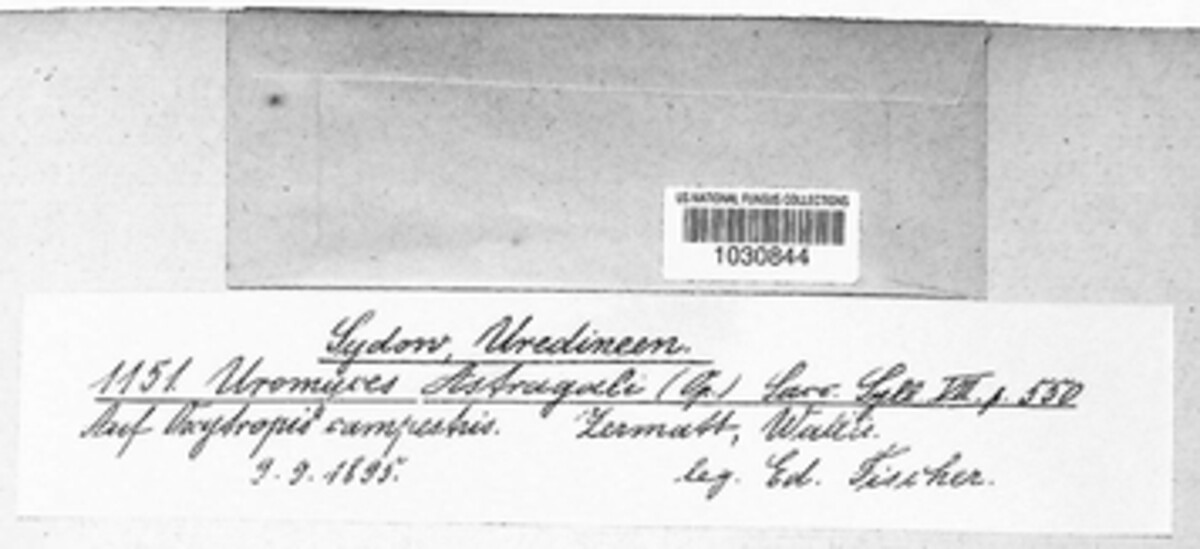 US NATIONAL FUNGUS COLLECTIONS
1030844
Sydow, Uredineen.
1151. Uromyces Astragali (Op.) Sacc. Syll. VII. p. 550
Auf Oxytropis campestris. Zermatt, Wallis.
9. 9. 1895. leg. Ed. Fischer.